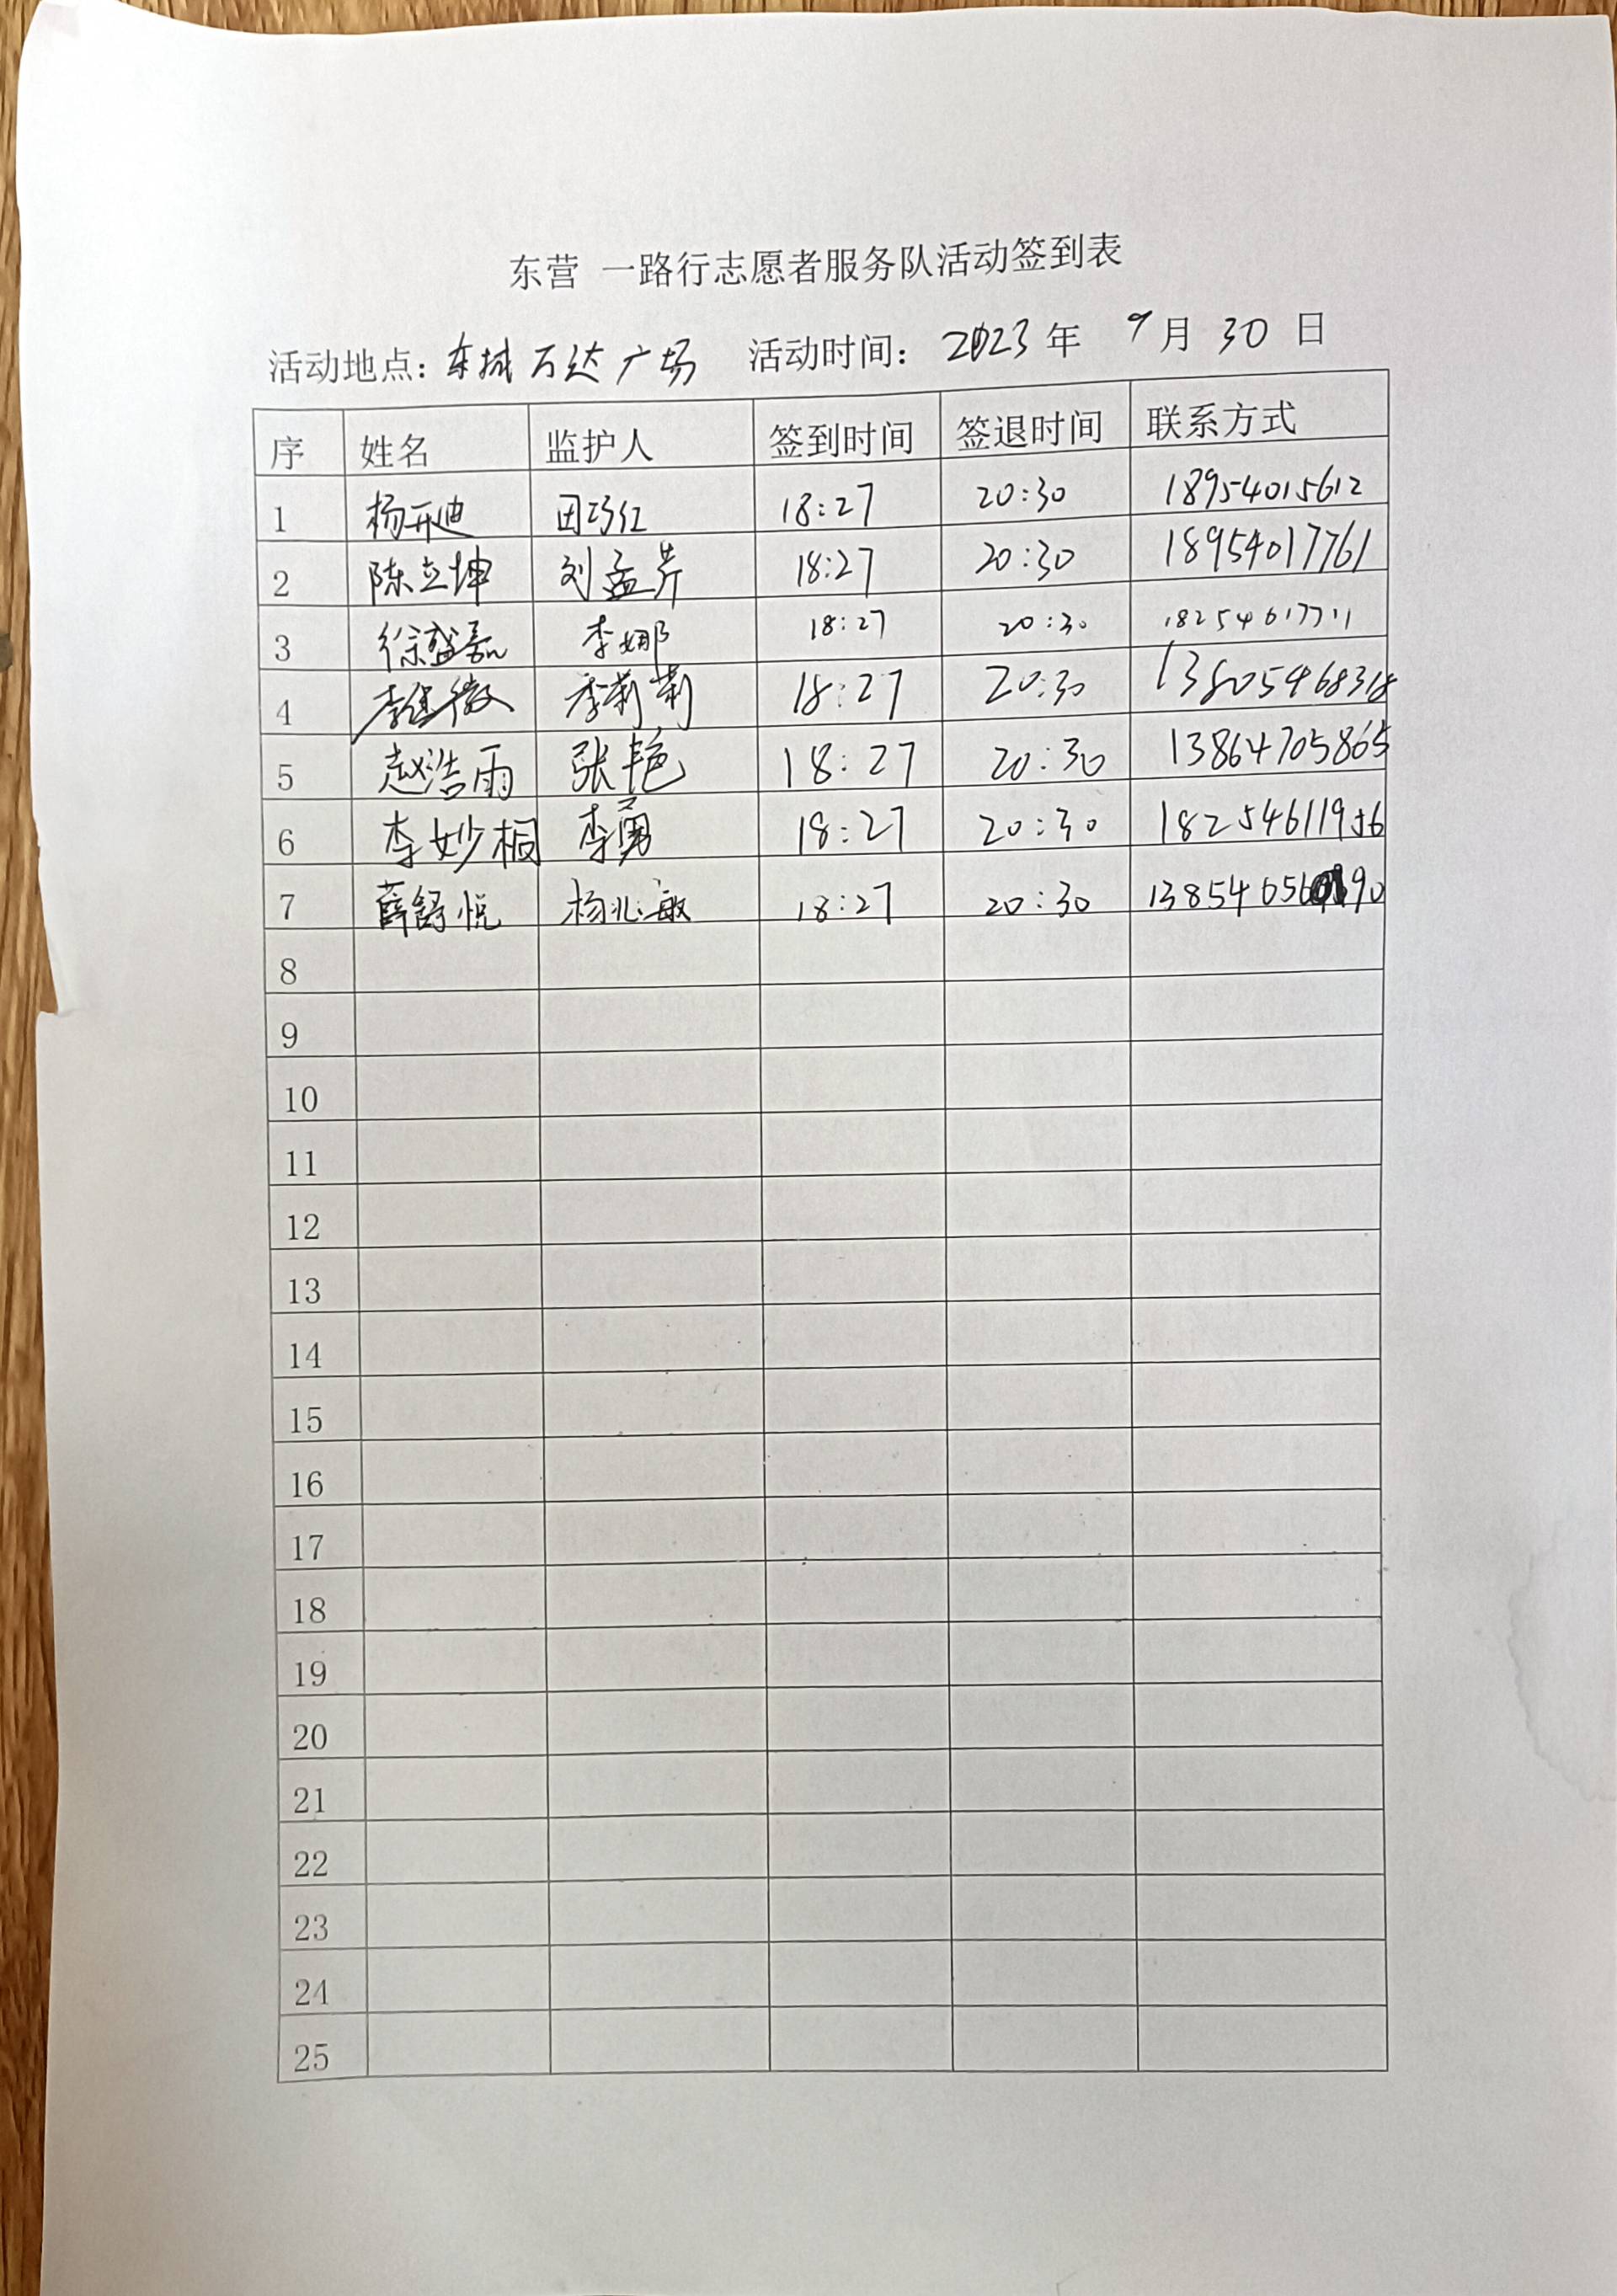 东营 一路行志愿者服务队活动签到表
活动地点：东城万达广场 活动时间：2023年 9月 30日
序 姓名 监护人 签到时间 签退时间 联系方式
1 杨开迪 田巧红 18:27 20:30 18954015612
2 陈立坤 刘孟芹 18:27 20:30 18954017761
3 徐盛嘉 李娜 18:27 20:30 18254617711
4 李莉莉 18:27 20:30 13805468318
5 赵浩雨 张艳 18:27 20:30 13864705865
6 李妙桐 李勇 18:27 20:30 18254611956
7 薛舒悦 杨兆敏 18:27 20:30
8
9
10
11
12
13
14
15
16
17
18
19
20
21
22
23
24
25